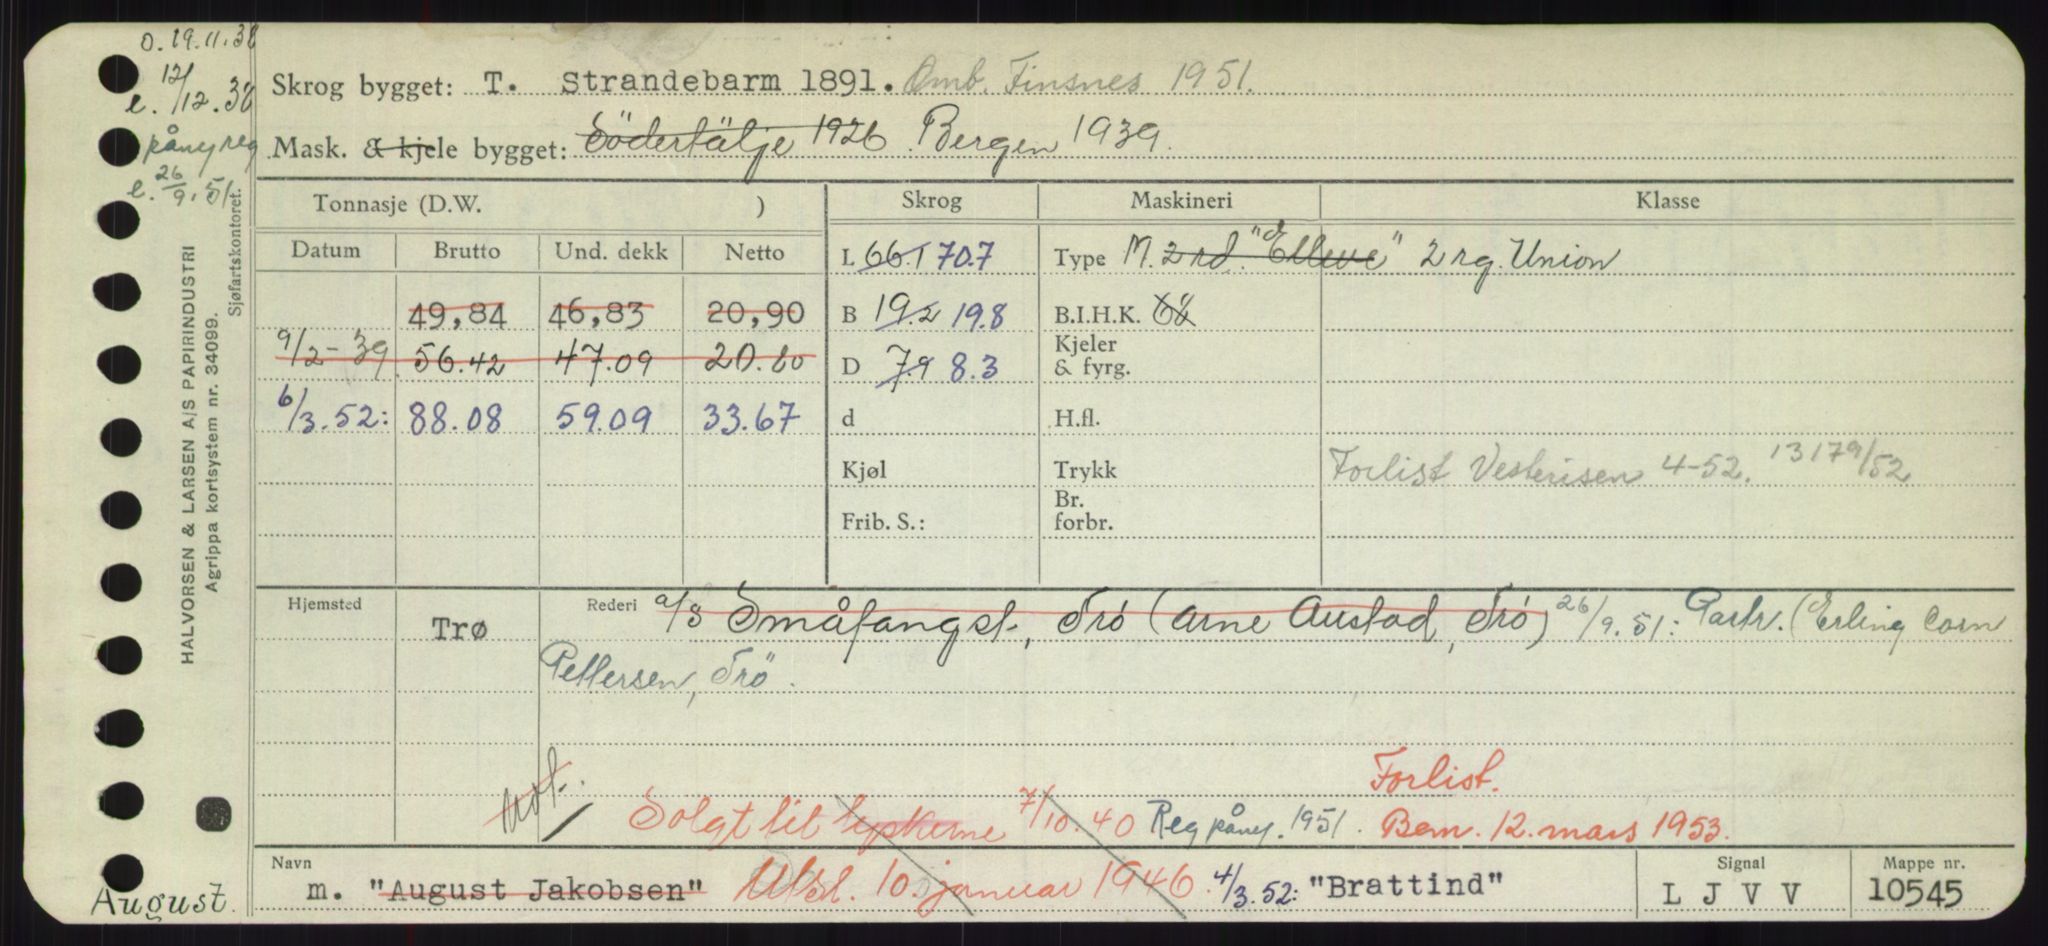 o. 19.11.38
e. 12/12.38
påny reg
e. 26/9.51
HALVORSEN & LARSEN A/S PAPIRINDUSTRI
Agrippa kortsystem nr. 34099.
Sjøfartskontoret.
August.
Skrog bygget: T. Strandebarm 1891. Omb. Finsnes 1951.
Mask. & kjele bygget: Södertälje 1926 Bergen 1939.
Tonnasje (D.W. ) Skrog Maskineri Klasse
Datum Brutto Und. dekk Netto L 66.1 70.7 Type M. 2 rd. "Elleve" 2 rg. Union
49,84 46,83 20,90 B 19.2 19.8 B.I.H.K.
9/2-39 56.42 47.09 20.80 D 7.9 8.3 Kjeler & fyrg.
6/3.52: 88.08 59.09 33.67 d H.fl.
Kjøl Trykk Forlist Vesterisen 4-52. 13179/52
Frib. S.: Br. forbr.
Hjemsted Trø Rederi a/s Småfangst, Trø (Arne Austad, Trø) 26/9.51: Partr. (Erling Corn
Pettersen, Trö.
Forlist.
Not. Solgt til tyskerne 7/10.40 Reg påny. 1951. Bem. 12. mars 1953.
Navn Signal Mappe nr.
m. "August Jakobsen" 10. januar 1946. 4/3.52: "Brattind" L J V V 10545